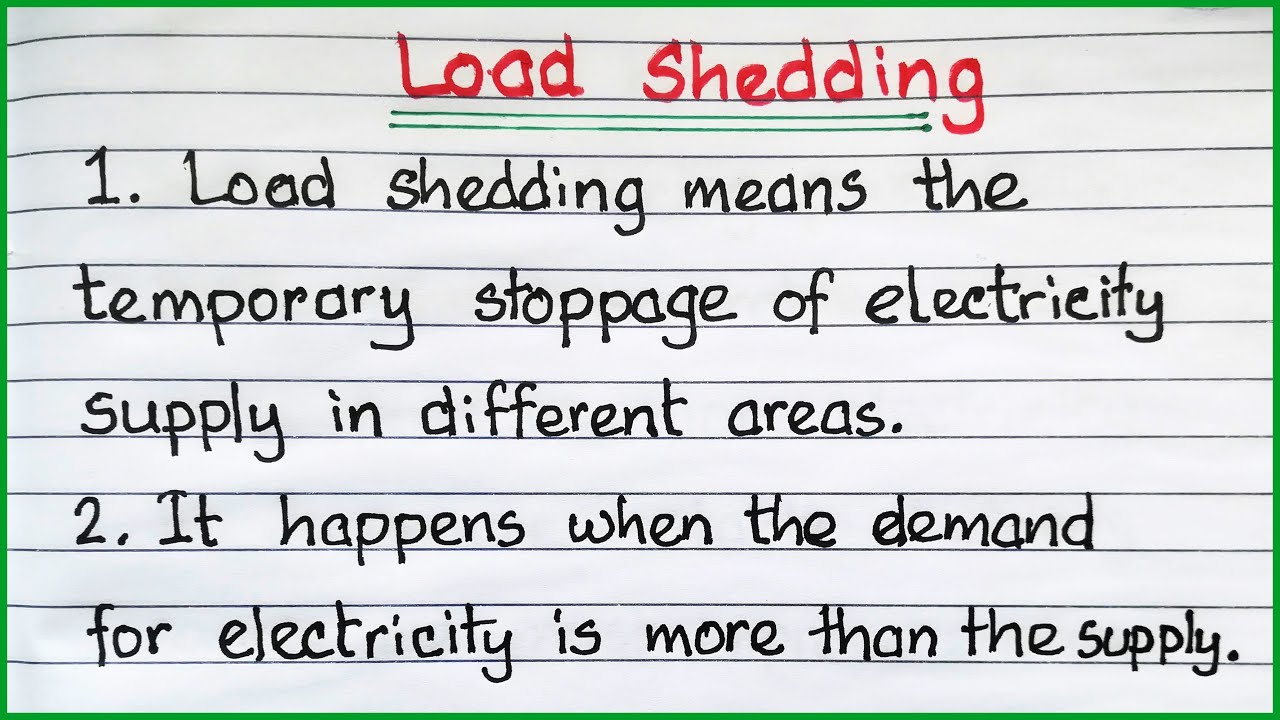 Load Shedding
1. Load shedding means the
temporary stoppage of electricity
supply in different areas.
2. It happens when the demand
for electricity is more than the supply.